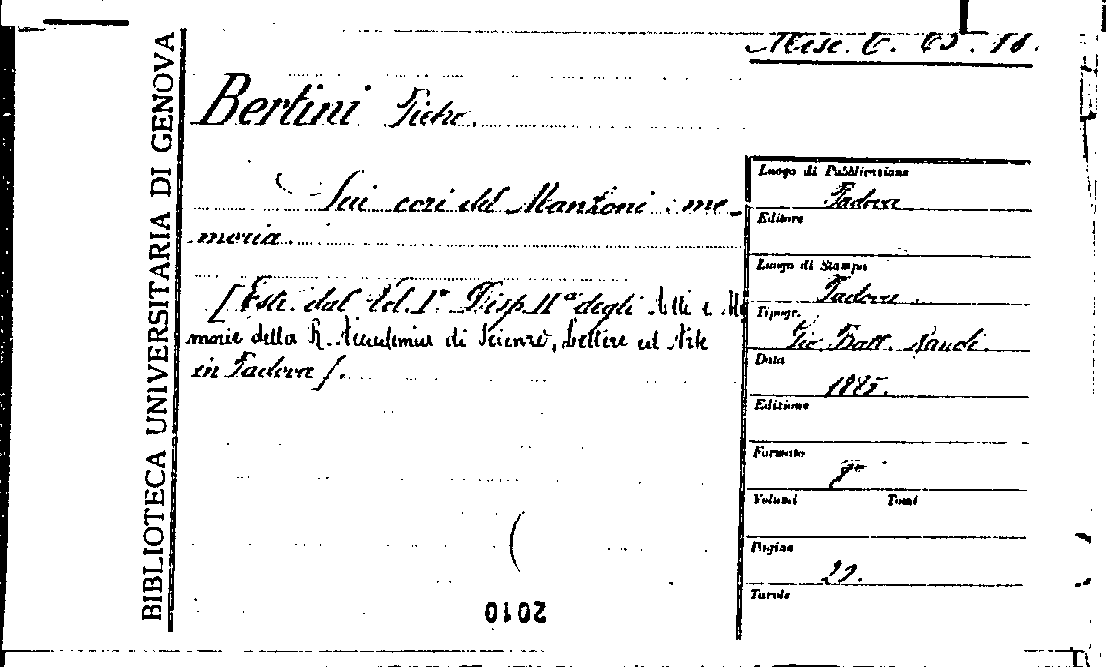 BIBLIOTECA UNIVERSITARIA DI GENOVA
Misc.
Bertini
Sui cori del Manzoni: me-
moria.
[Estr. dal Vol. 1° Disp. IIª degli Atti e Me
morie della R. Accademia di Scienze, Lettere ed Arti
in Padova].
Luogo di Pubblicazione
Padova
Editore
Luogo di Stampa
Padova.
Tipogr.
Gio. Batt. Randi.
Data
1885.
Edizione
Formato
8°
Volumi Tomi
Pagine
Tavole
2010